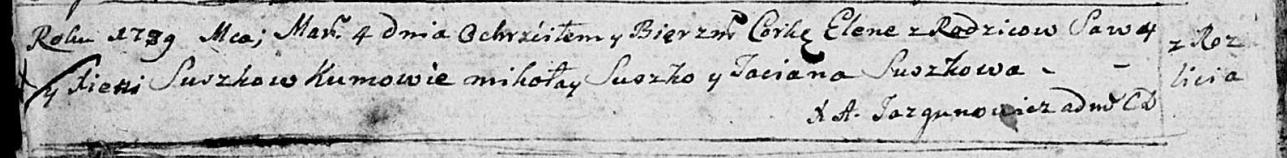 Roku 1789 Mca; Mar: 4 dnia Ochrzciłem y Bierzm: Corkę Elene z Rodzicow Sawy z Roz
y Fieńi Suszkow Kumowie mikołay Suszko y Taciana Suszkowa - - licia
X A. Jazgunowicz adm CD